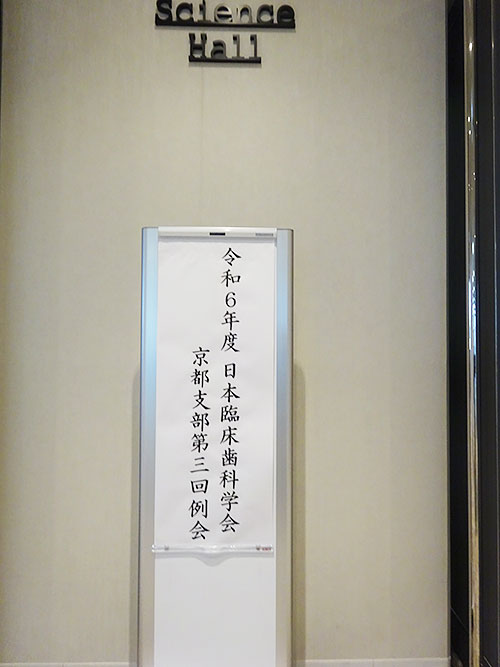 Science
Hall
令和6年度 日本臨床歯科学会
京都支部第三回例会